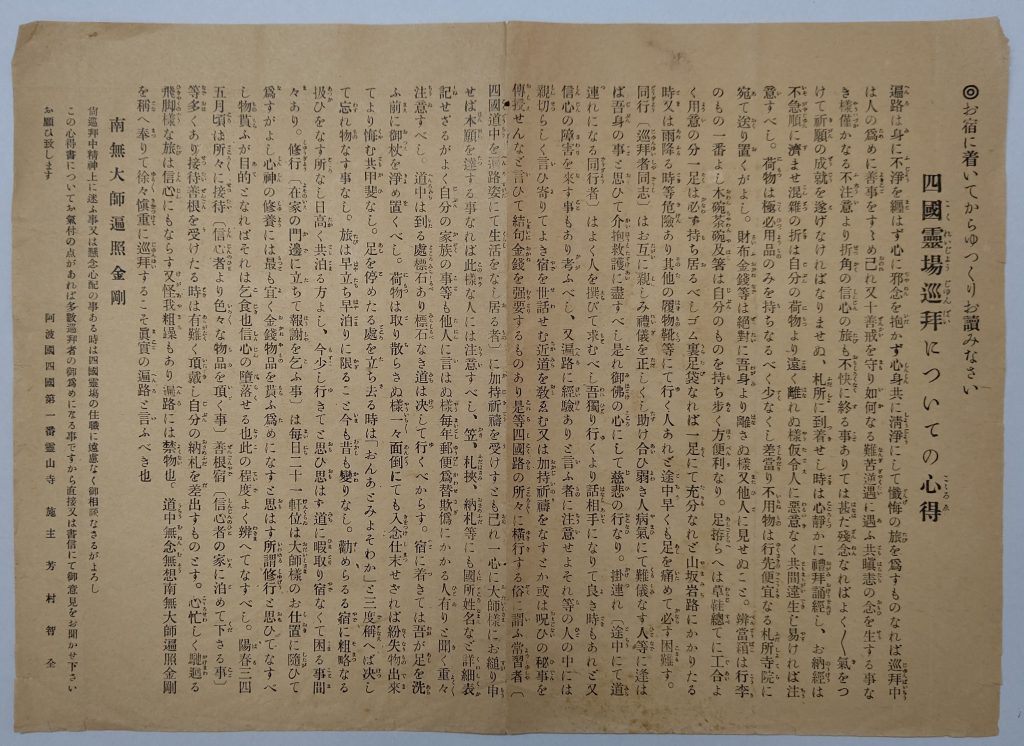 ◎お宿に着いてからゆつくりお讀みなさい
四國靈場巡拜についての心得
遍路は身に不淨を纒はず心に邪念を抱かず心身共に淸淨にして懺悔の旅を爲すものなれば巡拜中
は人の爲めに善事をすゝめ己れ又十善戒を守り如何なる難苦遭遇に遇ふ共瞋恚の念を生する事な
き樣僅かなる不注意より折角の信心の旅も不快に終る事ありては甚だ殘念なればよく〳〵氣をつ
けて祈願の成就を遂げなければなりませぬ、札所に到着せし時は心靜かに禮拜誦經し、お納經は
不急順に濟ませ混雜の折は自分の荷物より遠く離れぬ樣假令人に惡意なく共間違生じ易ければ注
意すべし。荷物は極必用品のみを持ちなるべく少なくし差當り不用物は行先便宜なる札所寺院に
宛て送り置くがよし。財布金錢等は絕對に吾身より離さぬ樣又他人に見せぬこと。辨當箱は行李
のもの一番よし木碗茶碗及箸は自分のものを持ち步く方便利なり。足拵らへは草鞋總てに工合よ
く用意の分一足は必す持ち居るべしゴム裏足袋なれば一足にて充分なれど山坂岩路にかかりたる
時又は雨降る時等危險あり其他の履物靴等にて行く人あれど途中早くも足を痛めて必す困難す。
同行〔巡拜者同志〕はお互に親しみ禮儀を正しくし助け合ひ弱き人病氣にて難儀なす人等に逢は
ば吾身の事と思ひて介抱救護に盡すべし是れ御佛の心にして慈悲の行なり。掛連れ〔途中にて道
連れになる同行者〕はよく人を撰びて求むべし吾獨り行くより話相手になりて良き時もあれど又
信心の障害を來す事もあり考ふべし、又遍路に經驗ありと言ふ者に注意せよそれ等の人の中には
親切らしく言ひ寄りてよき宿を世話せむ近道を敎ゑむ又は加持祈禱をなすとか或は呪ひの秘事を
傳授せんなど言ひて結句金錢を强要するものあり是等四國路の所々に橫行する俗に謂ふ常習者〔
四國道中を遍路姿にて生活をなし居る者〕に加持祈禱を受けすとも己れ一心に大師樣にお縋り申
せば本願を達する事なれは此樣な人には注意すべし、笠、札挾、納札等にも國所姓名など詳細表
記せざるがよく自分の家族の事等も他人に言はぬ樣每年郵便爲替欺僞にかかる人有りと聞く重々
注意すべし。道中は到る處標石あり標石なき道は決して行くべからす。宿に着きては吾が足を洗
ふ前に御杖を淨め置くべし。荷物は取り散らさぬ樣一々面倒にても入念仕末せされば紛失物出來
てより悔む共甲斐なし。足を停めたる處を立ち去る時は「おんあとみよそわか」と三度稱へば決し
て忘れ物なす事なし。旅は早立ち早泊りに限ること今も昔も變りなし。勸めらるる宿に粗略なる
扱ひをなす所なし日高く共泊る方よし、今少し行きてと思ひ思はす道に暇取り宿なくて困る事間
々あり。修行〔在家の門邊に立ちて報謝を乞ふ事〕は每日二十一軒位は大師樣のお仕置に隨ひて
爲すがよし心神の修養には最も宜く金錢物品を貰ふ爲めになすと思はす所謂修行と思ひてなすべ
し物貰ふが目的とななればそれは乞食也信心の墮落せる也此の程度よく辨へてなすべし。陽春三四
五月頃は所々に接待〔信心者より色々な物品を頂く事〕善根宿〔信心者の家に泊めて下さる事〕
等多くあり接待善根を受けたる時は有難く頂戴し自分の納札を差出すものとす。心忙しく馳廻る
飛脚樣な旅は信心にもならす又怪我粗相もあり遍路には禁物也、道中無念無想南無大師遍照金剛
を稱へ奉りて徐々愼重に巡拜するこそ眞實の遍路と言ふべき也
南無大師遍照金剛
尙巡拜中精神上に迷ふ事又は懸念心配の事ある時は四國靈場の住職に遠慮なく御相談なさるがよろし
この心得書についてお氣付の点があれば多數巡拜者の御爲めになる事ですから直接又は書信にて御意見をお聞かせ下さい
お願ひ致します
阿波國四國第一番靈山寺 施主 芳村智全